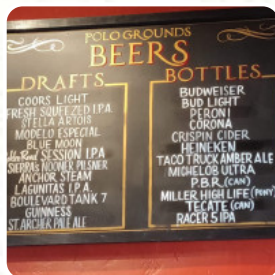 POLO GROUNDS
BEERS
DRAFTS
COORS LIGHT
FRESH SQUEEZED I.P.A.
STELLA ARTOIS
MODELO ESPECIAL
BLUE MOON
SESSION I.P.A.
SIERRA NOONER PILSNER
ANCHOR STEAM
LAGUNITAS I.P.A.
BOULEVARD TANK 7
GUINNESS
ST. ARCHER PALE ALE
BOTTLES
BUDWEISER
BUD LIGHT
PERONI
CORONA
CRISPIN CIDER
HEINEKEN
TACO TRUCK AMBER ALE
MICHELOB ULTRA
P.B.R. (CAN)
MILLER HIGH LIFE (PONY)
TECATE (CAN)
RACER 5 IPA